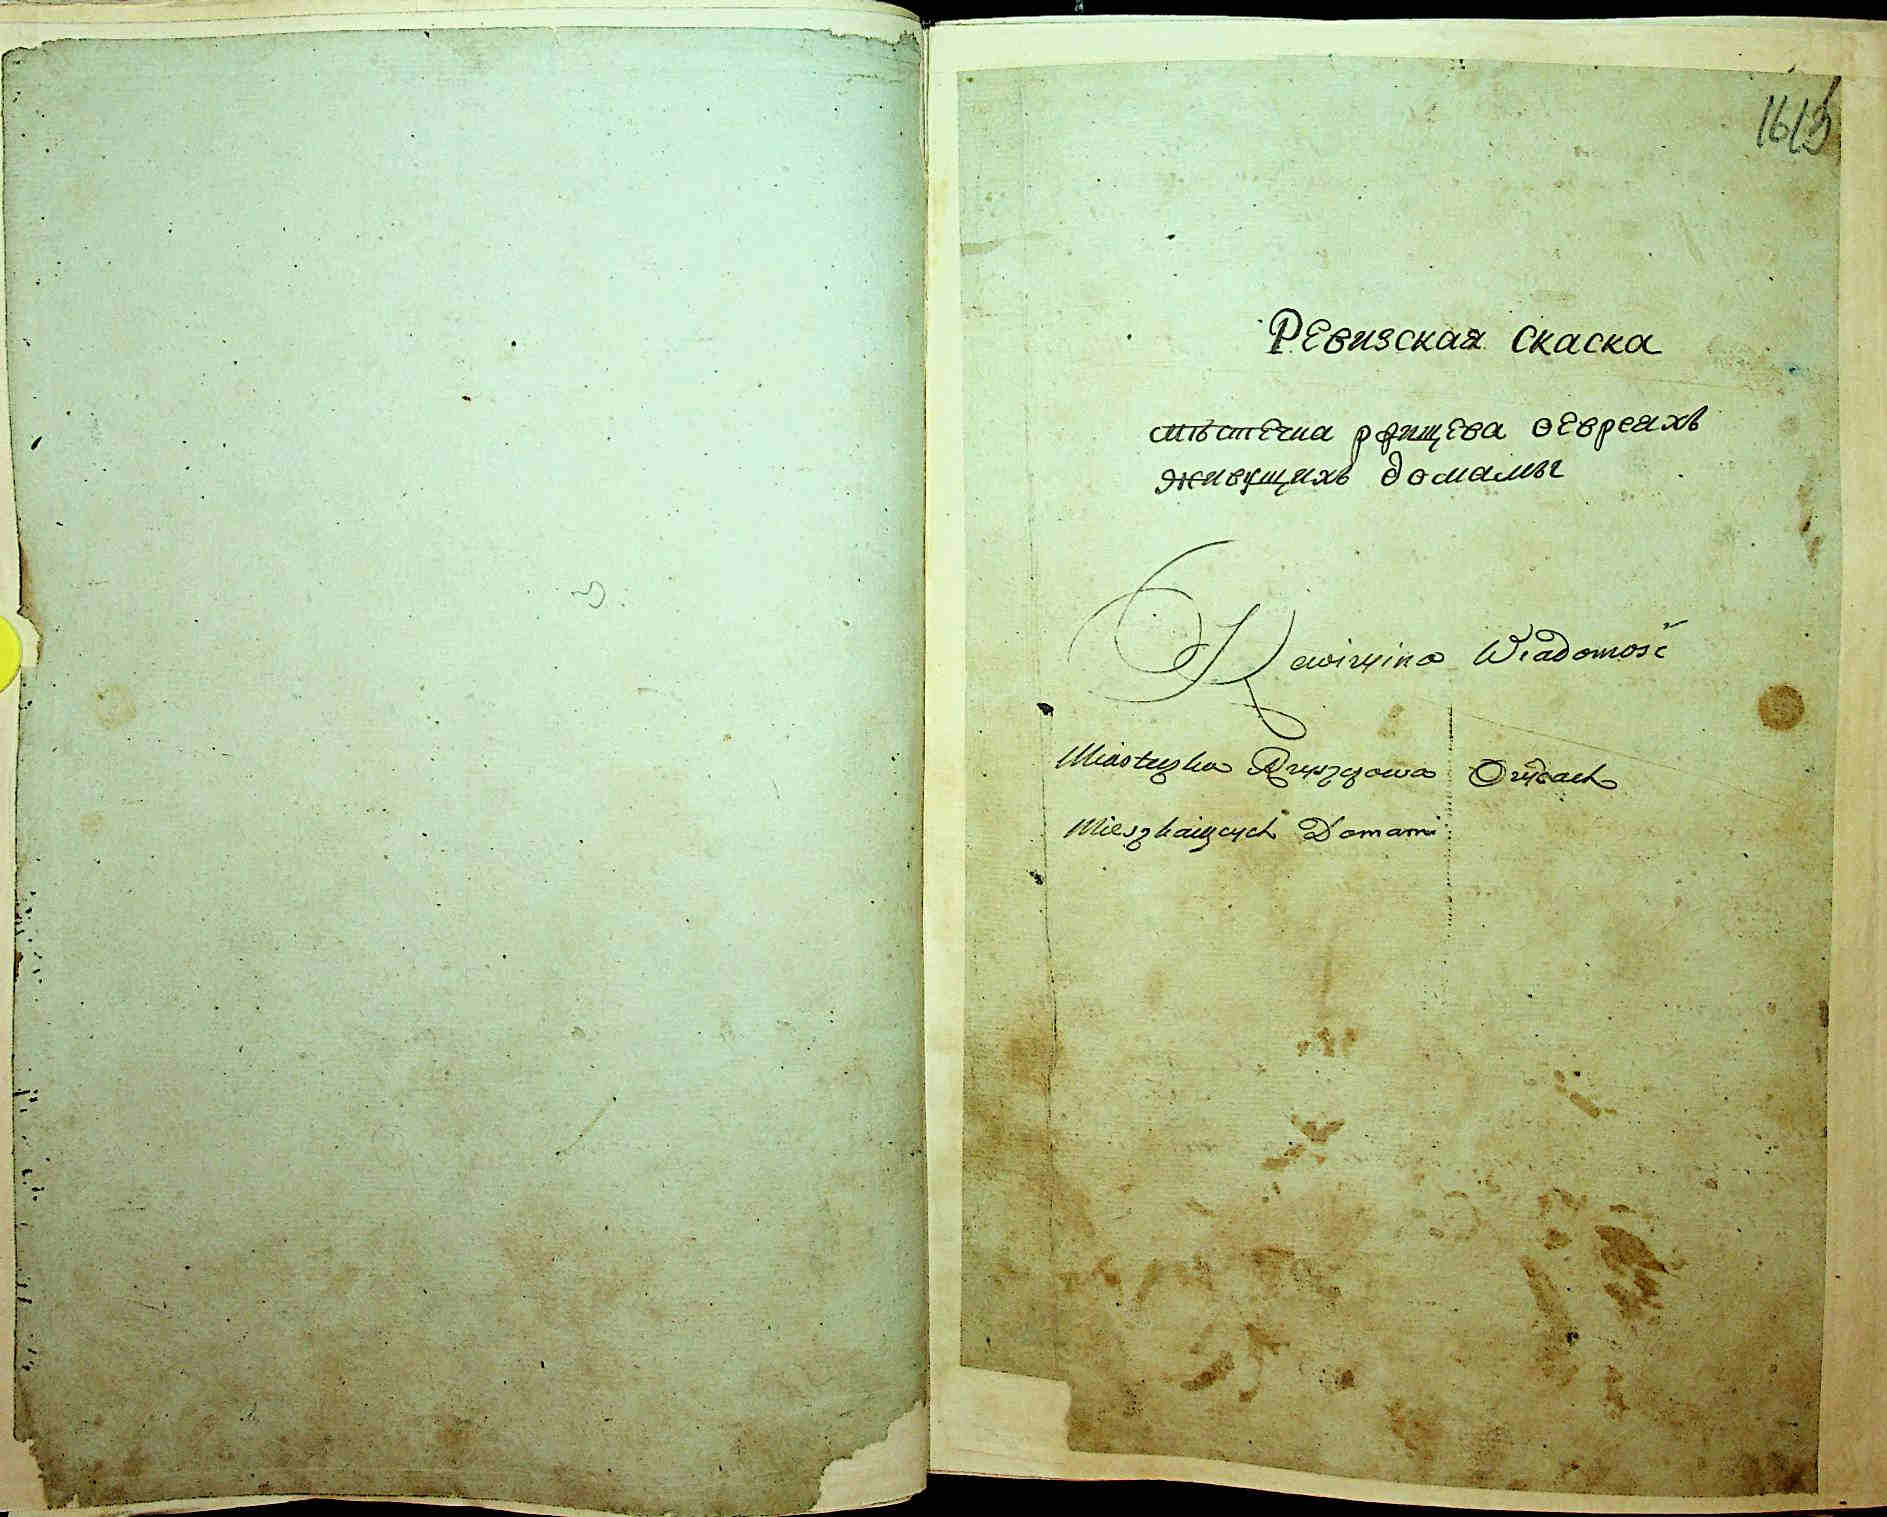 Ревизская скаска
мѣстечка ржищева оевреахъ
живущихъ домамы
Rewizyina Wiadomość
Miasteczka Rzyszczowa O Żydach
Mieszkaiących Domami